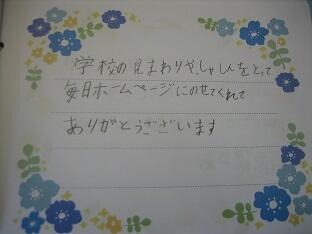 学校の見まわりや、しゃしんをとって
毎日ホームページにのせてくれて
ありがとうございます